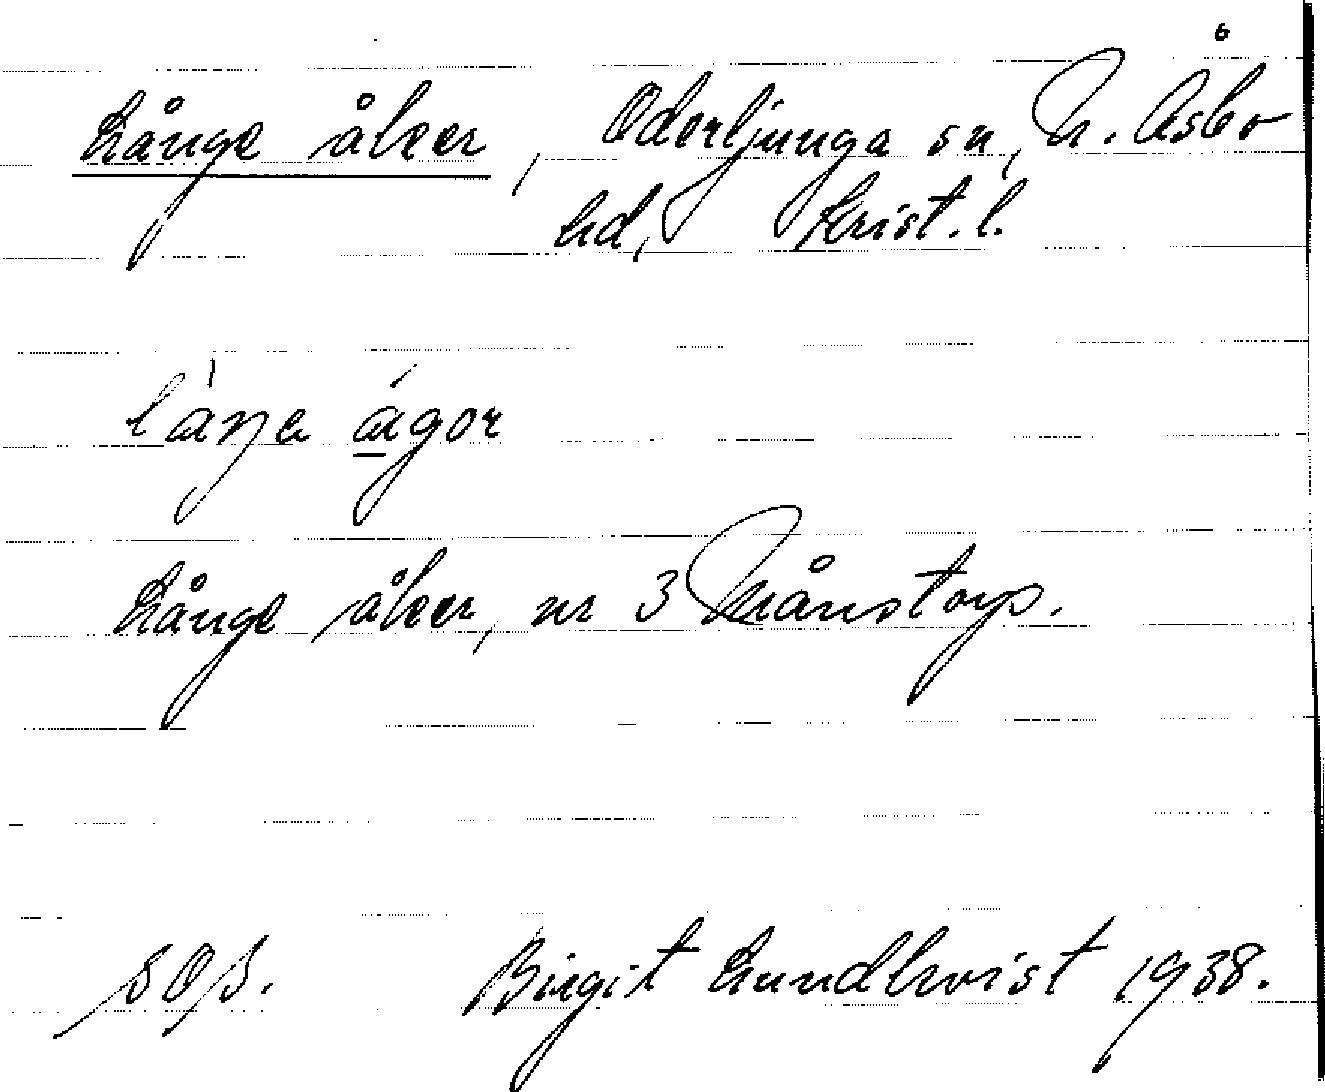 6
Långe åker, Oderljunga sn, N. Åsbo
hd, Krist. l.
láŋa ágor
Långe åker, nr 3 Månstorp.
SOS. Birgit Lundkvist 1938.